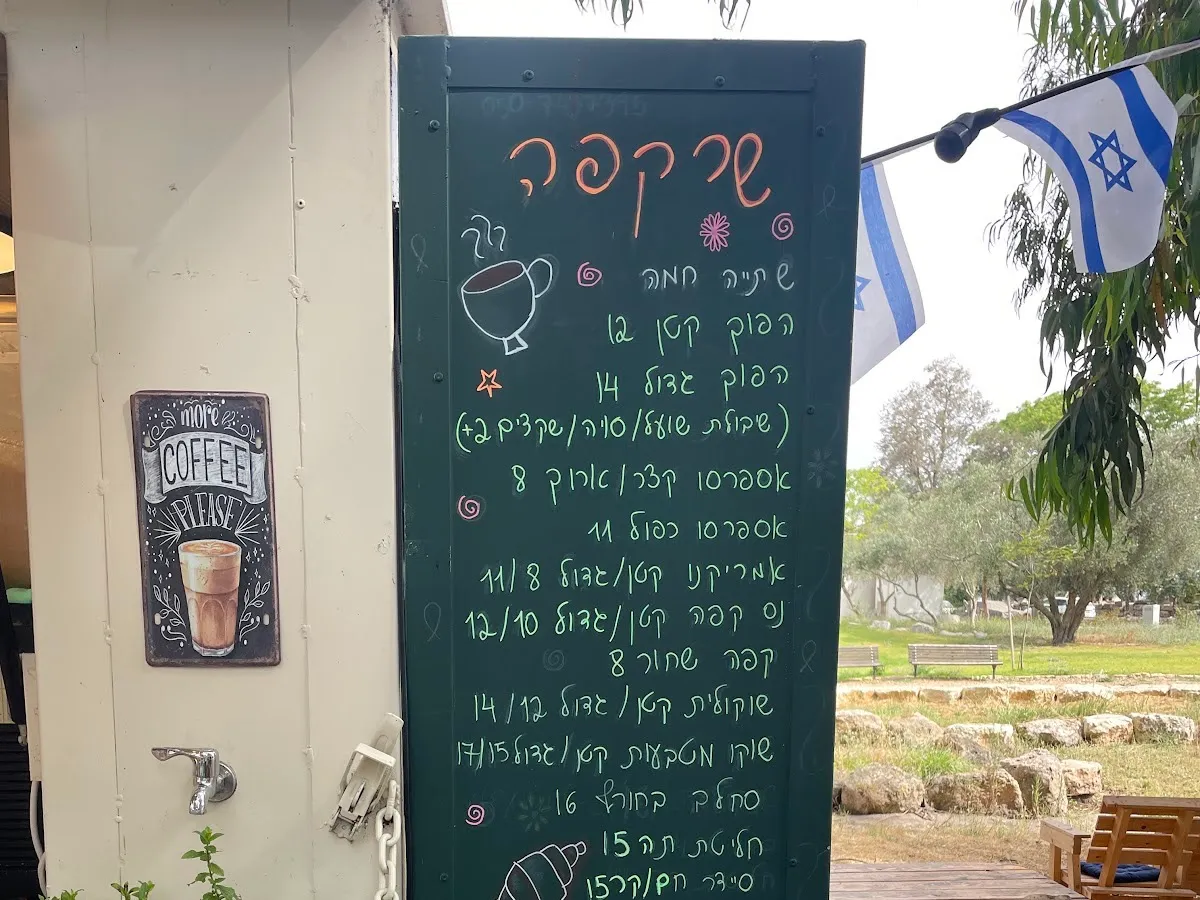 שר קפה
שתייה חמה
הפוך קטן 12
הפוך גדול 14
(שיבולת שועל/סויה/שקדים 2+)
אספרסו קצר/ארוך 8
אספרסו כפול 11
אמריקנו קטן/גדול 11/8
נס קפה קטן/גדול 12/10
קפה שחור 8
שוקולית קטן/גדול 14/12
שוקו מטבעות קטן/גדול 17/15
סחלב בחורף 16
חליטת תה 15
סיידר חם/קר 15
more
COFFEE
PLEASE